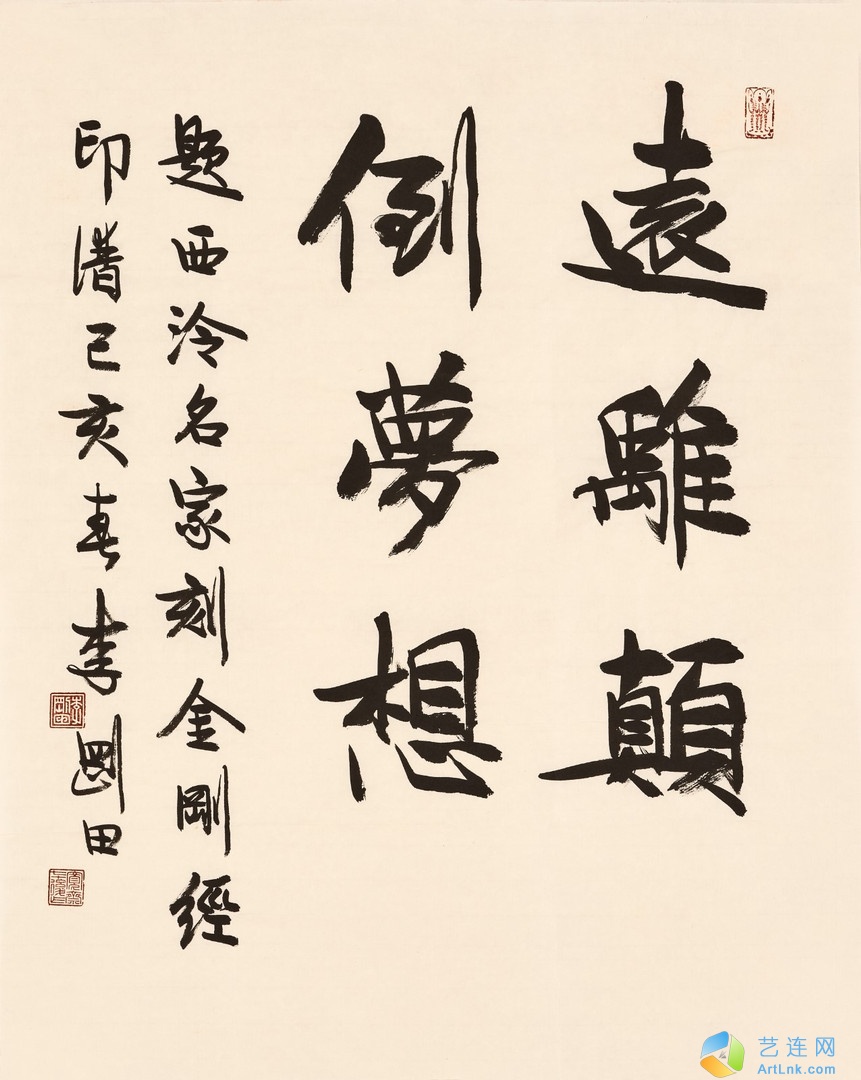 遠離顛
倒夢想
題西泠名家刻金剛經
印譜己亥春李剛田
艺连网
ArtLnk.com